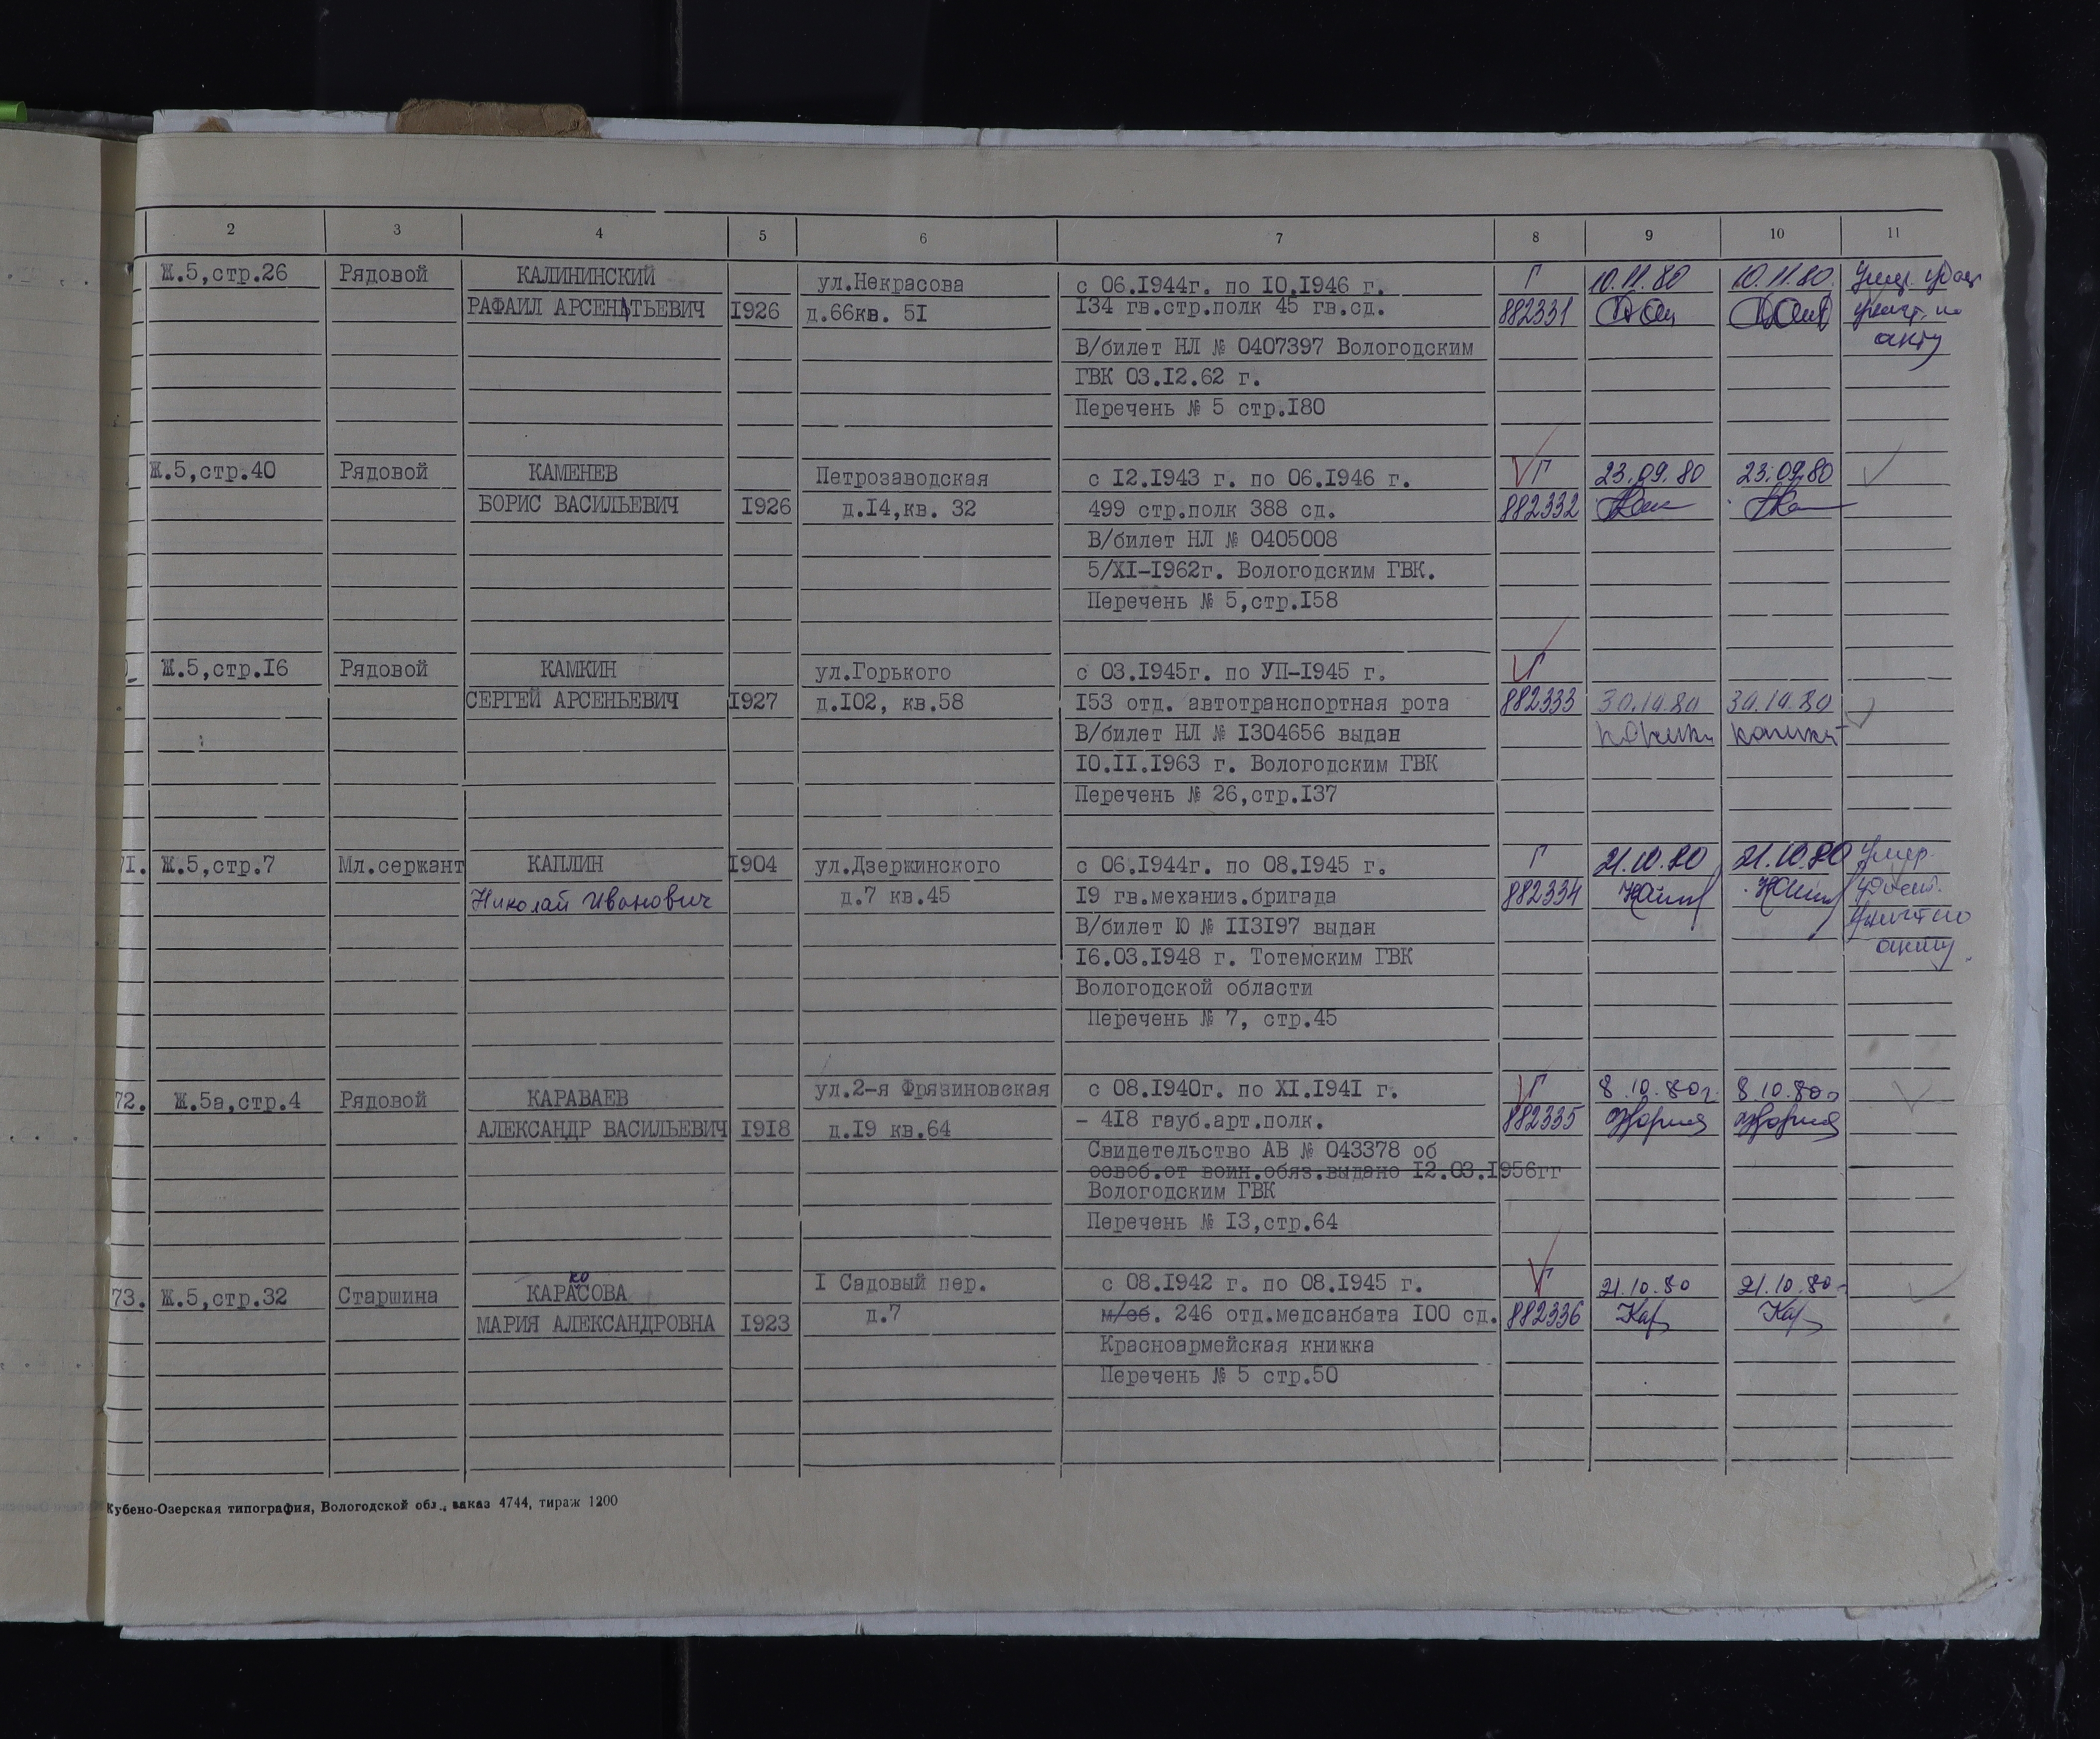 2 3 4 5 6 7 8 9 10 11
Ж.5,стр.26 Рядовой КАЛИНИНСКИЙ ул.Некрасова с 06.I944г. по I0.I946 г. Г 10.11.80 10.11.80.
РАФАИЛ АРСЕНТЬЕВИЧ I926 д.66кв. 5I I34 гв.стр.полк 45 гв.сд. 882331
акту
В/билет НЛ № 0407397 Вологодским
ГВК 03.I2.62 г.
Перечень № 5 стр.I80
Ж.5,стр.40 Рядовой КАМЕНЕВ Петрозаводская с I2.I943 г. по 06.I946 г. Г 23.09.80 23.09.80
БОРИС ВАСИЛЬЕВИЧ I926 д.I4,кв. 32 499 стр.полк 388 сд. 882332
В/билет НЛ № 0405008
5/XI-I962г. Вологодским ГВК.
Перечень № 5,стр.I58
Ж.5,стр.I6 Рядовой КАМКИН ул.Горького с 03.I945г. по УП-I945 г. Г
СЕРГЕЙ АРСЕНЬЕВИЧ I927 д.I02, кв.58 I53 отд. автотранспортная рота 882333 30.10.80 30.10.80
В/билет НЛ № I304656 выдан
I0.II.I963 г. Вологодским ГВК
Перечень № 26,стр.I37
7I. Ж.5,стр.7 Мл.сержант КАПЛИН I904 ул.Дзержинского с 06.I944г. по 08.I945 г. Г 21.10.80 21.10.80 Умер.
Николай Иванович д.7 кв.45 I9 гв.механиз.бригада 882334
В/билет Ю № II3I97 выдан
I6.03.I948 г. Тотемским ГВК акту
Вологодской области
Перечень № 7, стр.45
72. Ж.5а,стр.4 Рядовой КАРАВАЕВ ул.2-я Фрязиновская с 08.I940г. по XI.I94I г. Г 8.10.80г. 8.10.80г
АЛЕКСАНДР ВАСИЛЬЕВИЧ I9I8 д.I9 кв.64 - 4I8 гауб.арт.полк. 882335
Свидетельство АВ № 043378 об
освоб.от воин.обяз.выдано I2.03.I956гг
Вологодским ГВК
Перечень № I3,стр.64
ко
73. Ж.5,стр.32 Старшина КАРАСОВА I Садовый пер. с 08.I942 г. по 08.I945 г. Г 21.10.80 21.10.80г
МАРИЯ АЛЕКСАНДРОВНА I923 д.7 м/об. 246 отд.медсанбата I00 сд. 882336 Кар Кар
Красноармейская книжка
Перечень № 5 стр.50
Кубено-Озерская типография, Вологодской обл., заказ 4744, тираж 1200